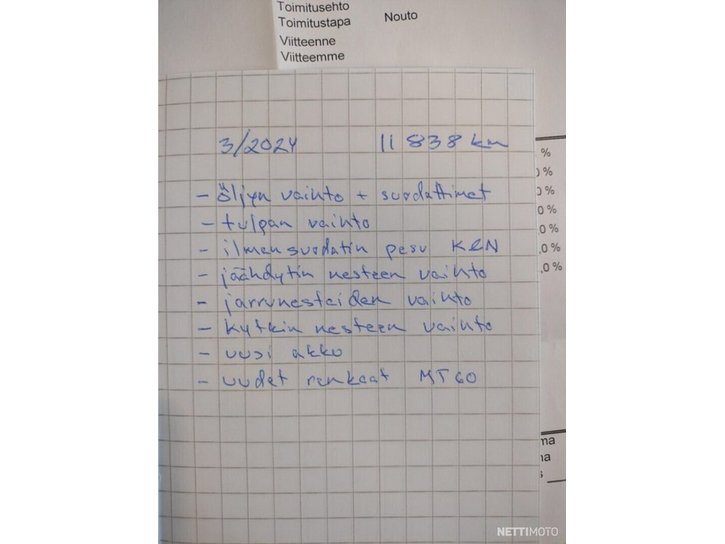 Toimitusehto
Toimitustapa Nouto
Viitteenne
Viitteemme
3/2024 11 838 km
- öljyn vaihto + suodattimet
- tulpan vaihto
- ilmansuodatin pesu K&N
- jäähdytin nesteen vaihto
- jarrunesteiden vaihto
- kytkin nesteen vaihto
- uusi akku
- uudet renkaat MT60
%
0 %
0 %
0 %
,0 %
,0 %
,0 %
ma
na
s
NETTIMOTO